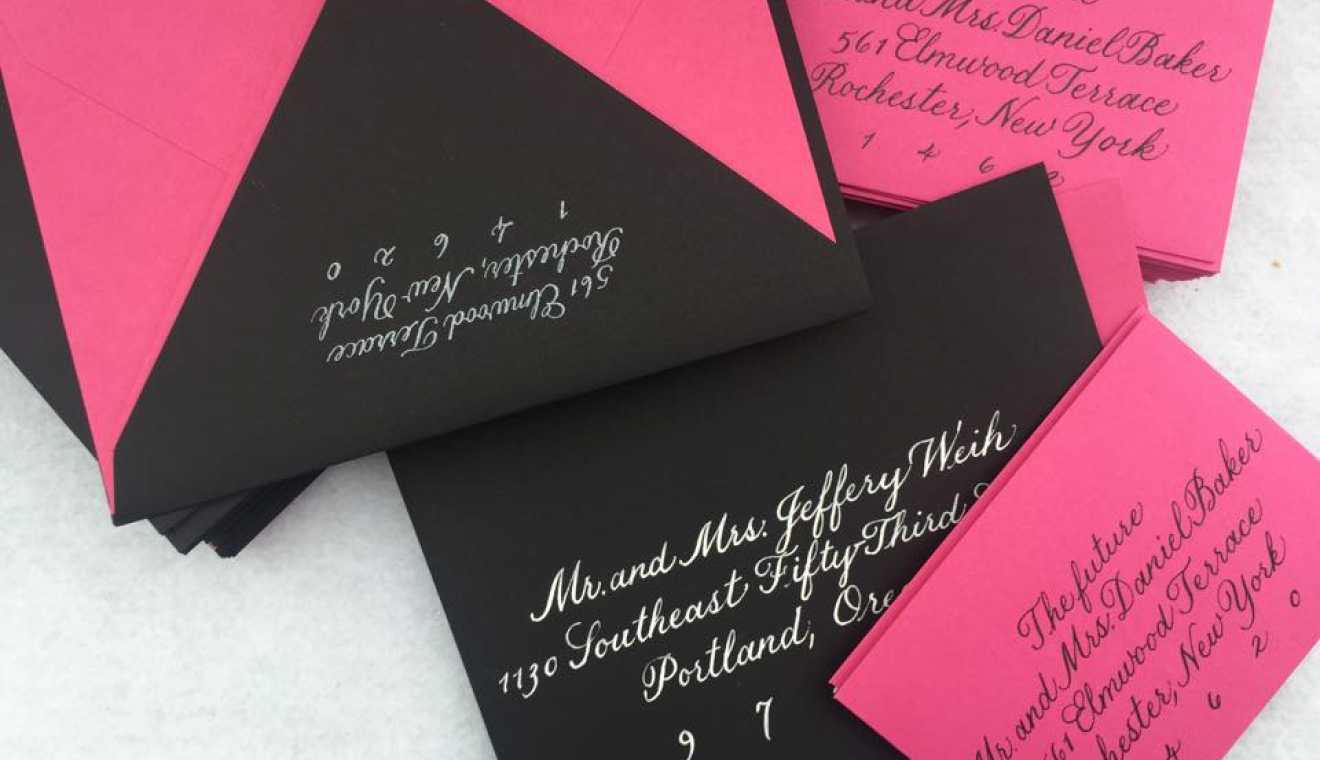 and Mrs. Daniel Baker
561 Elmwood Terrace
Rochester, New York
1 4 6
561 Elmwood Terrace
Rochester, New York
1 4 6 2 0
Mr. and Mrs. Jeffery Weih
1130 Southeast Fifty-Third
Portland,
9 7
The future
Mr. and Mrs. Daniel Baker
561 Elmwood Terrace
New York
4 6 2 0